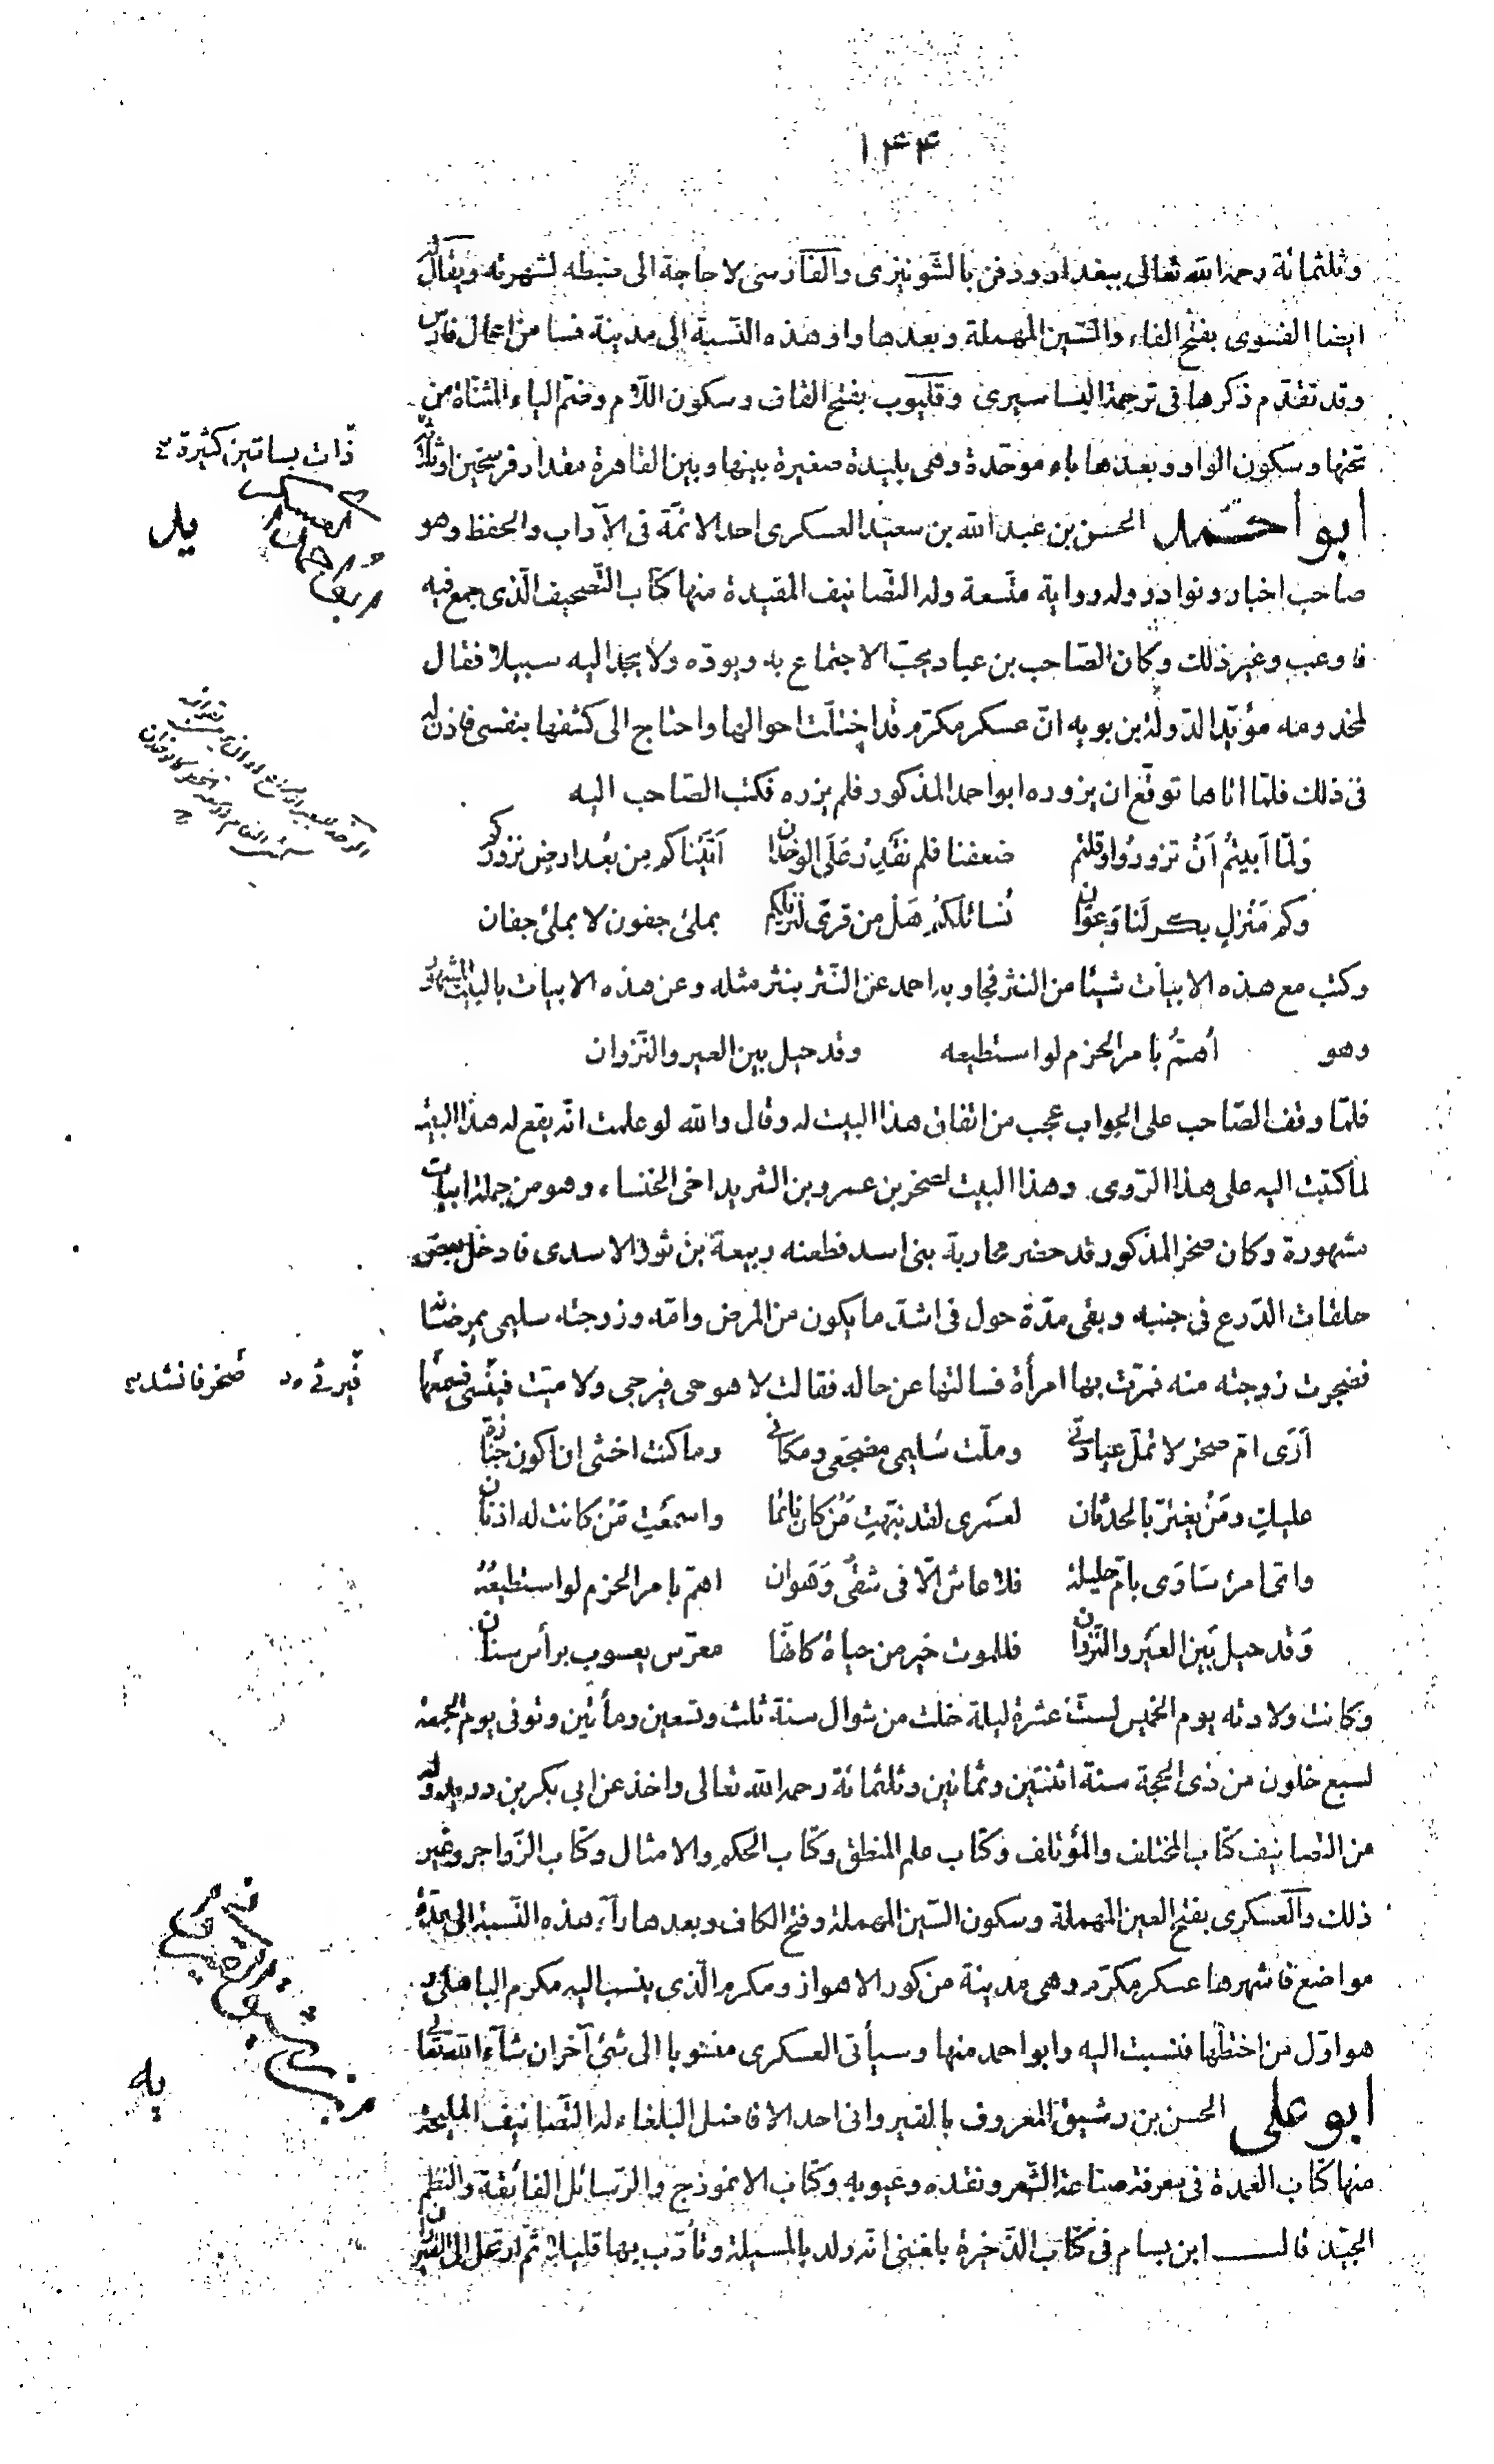 ١٤٤
وثلثمائة رحمه الله تعالى ببغداد ودفن بالشونيزى والفارسى لا حاجة الى ضبطه لشهرته ويقال له
ايضا الفسوى بفتح الفاء والسين المهملة وبعدها واو هذه النسبة الى مدينة فسا من اعمال فارس
وقد تقدم ذكرها فى ترجمة البساسيرى وقليوب بفتح القاف وسكون اللام وضم الياء المثناة من
تحتها وسكون الواو وبعدها باء موحدة وهى بليدة صغيرة بينها وبين القاهرة مقدار فرسخين او ثلاثة
ذات بساتين كثيرة
ابو احمد الحسن بن عبد الله بن سعيد العسكرى احد الائمة فى الآداب والحفظ وهو
يد
صاحب اخبار ونوادر وله رواية متسعة وله التصانيف المفيدة منها كتاب التصحيف الذى جمع فيه
فاوعب وغير ذلك وكان الصاحب بن عباد يحب الاجتماع به ويوده ولا يجد اليه سبيلا فقال
لمخدومه مؤيد الدولة بن بويه ان عسكر مكرم قد اختلت احوالها واحتاج الى كشفها بنفسى فاذن له
فى ذلك فلما اتاها توقع ان يزوره ابو احمد المذكور فلم يزره فكتب الصاحب اليه
وَلمّا اَبيتُم اَنْ تزورُوا وقلتم ضعفنا فلم نقدِرْ عَلَى الوخدان اَتَيْناكم مِن بُعد ارضٍ نزوركم
وكم مَنْزلٍ بكرٍ لَنا وَعِوَانِ نُسائلكُم هَلْ من قرًى لنزيلكم بملئ جفون لا بملئ جفان
وكتب مع هذه الابيات شيئا من النثر فجاوبه احمد عن النثر بنثر مثله وعن هذه الابيات بالبيت المشهور
وهو أهمُّ بامر الحزم لو استطيعه وقد حيل بين العير والنزوان
فلما وقف الصاحب على الجواب عجب من اتفاق هذا البيت له وقال والله لو علمت انه يقع له هذا البيت
لما كتبت اليه على هذا الروى وهذا البيت لصخر بن عمرو بن الشريد اخى الخنساء وهو من جملة ابيات
مشهورة وكان صخر المذكور قد حضر محاربة بنى اسد فطعنه ربيعة بن ثور الاسدى فادخل بعض
حلقات الدرع فى جنبه وبقى مدة حول فى اشد ما يكون من المرض وامه وزوجته سليمى يمرضانه
فضجرت زوجته منه فمرت بها امرأة فسالتها عن حاله فقالت لا هو حى فيرجى ولا ميت فينسى فسمعها
صخر فانشد
اَرَى امّ صخر لا تملّ عيادتى وملّت سُليمى مضجعى ومكانى وما كنت اخشى ان اكون جنازة
عليكِ ومَنْ يغترّ بالحدثان لعَمرى لقد نبّهتِ مَنْ كان نائما واسمعَتِ مَنْ كانت له اذنان
واىّ امرئ سَاوَى بامّ حليلة فلا عاش الّا فى شقًى وَهَوان اهمّ بامر الحزم لو استطيعُهُ
وَقد حيل بَين العَير والنَّزوان فللموت خير من حياة كانها معرّس يعسوب برأس سنان
وكانت ولادته يوم الخميس لست عشرة ليلة خلت من شوال سنة ثلث وتسعين ومأتين وتوفى يوم الجمعة
لسبع خلون من ذى الحجة سنة اثنتين وثمانين وثلثمائة رحمه الله تعالى واخذ عن ابى بكر بن دريد وله
من التصانيف كتاب المختلف والمؤتلف وكتاب علم المنطق وكتاب الحكم والامثال وكتاب الزواجر وغير
ذلك والعسكرى بفتح العين المهملة وسكون السين المهملة وفتح الكاف وبعدها راء هذه النسبة الى عدة
مواضع فاشهرها عسكر مكرم وهى مدينة من كور الاهواز ومكرم الذى ينسب اليه مكرم الباهلى و
هو اول من اختطها فنسبت اليه وابو احمد منها وسيأتى العسكرى منسوبا الى شئ آخر ان شاء الله تعالى
ابو على الحسن بن رشيق المعروف بالقيروانى احد الافاضل البلغاء له التصانيف المليحة
يه
منها كتاب العمدة فى معرفة صناعة الشعر ونقده وعيوبه وكتاب الانموذج والرسائل الفائقة والنظم
الجيد قال ابن بسام فى كتاب الذخيرة بلغنى انه ولد بالمسيلة وتأدب بها قليلا ثم ارتحل الى القيروان